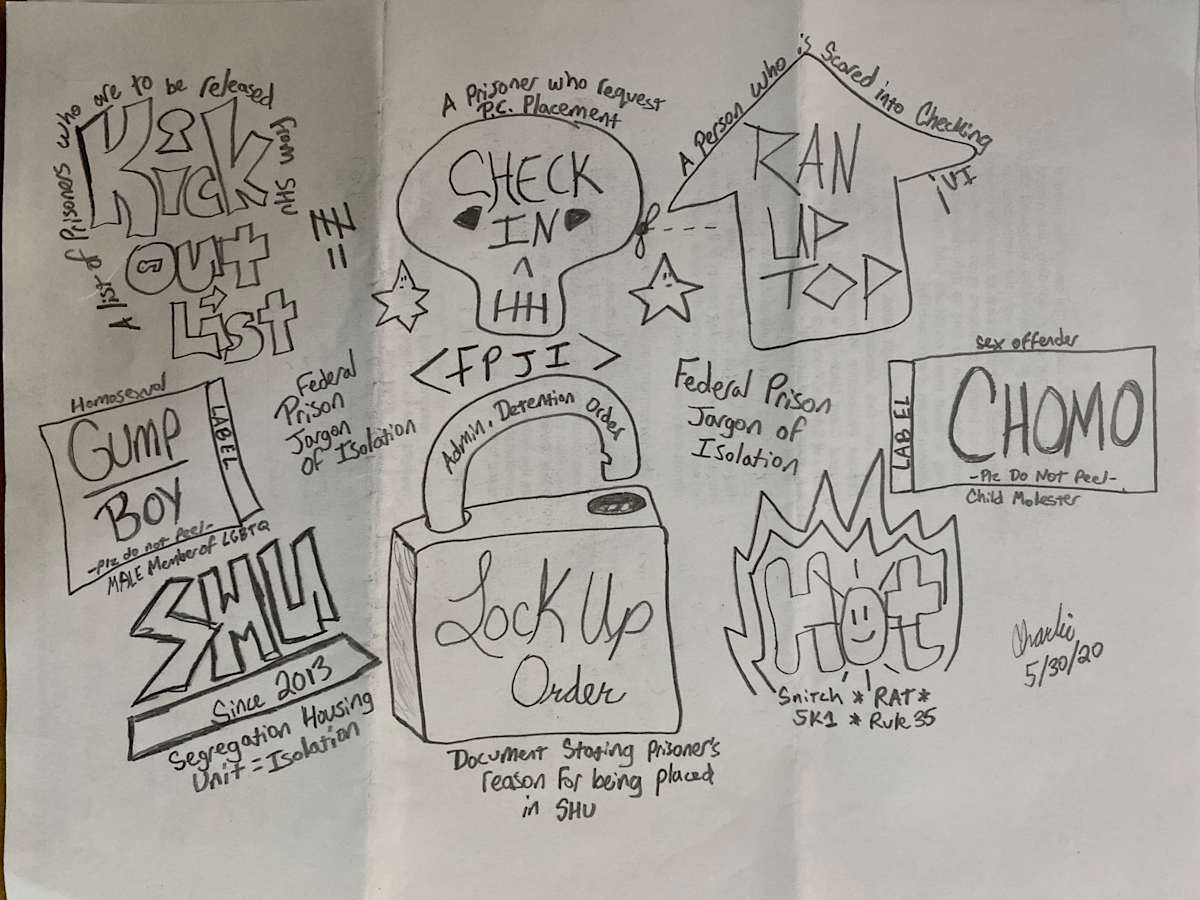 A list of Prisoners who are to be released
from SHU
KicK
Out
List
A Prisoner who request
P.C. Placement
CHECK
IN
A Person who is Scared into Checking
in
RAN
UP
TOP
<FPJI>
Federal
Prison
Jargon
of Isolation
Federal Prison
Jargon of
Isolation
Homosexual
GUMP
BOY
-Plz do not Peel-
LABEL
MALE Member of LGBTQ
sex offender
LABEL
CHOMO
-Plz Do Not Peel-
Child Molester
Admin. Detention Order
Lock Up
Order
Document Stating Prisoner's
reason for being placed
in SHU
SHU
Since 2013
Segregation Housing
Unit = Isolation
Hot
Snitch * RAT *
5K1 * Rule 35
Charlie
5/30/20